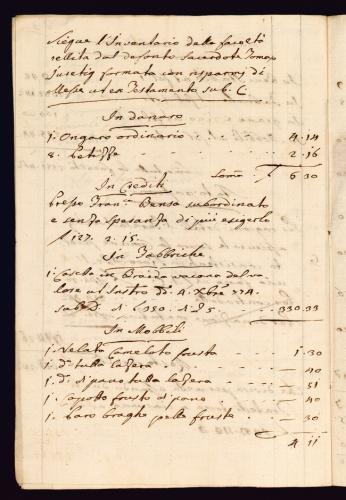 Siegue l'Inventario della facoltà
relita dal defonto Sacerdote Tomaso
formata con risparmj di
Messe ut ex Testamento sub. C.
In danaro
1. Ongaro ordinario 4. 14
8. 2. 16
Soma 6 30
In Crediti
Presso Fran.co Bensa subordinato
e senza speranza di più esigerlo
127. 2. 15.
In Fabbriche
1. Casetta in Braida vacona del va-
lore ut Instro dd. 4. Xbre 774.
sub D. di 350. di 330. 33
In Mobbili
1. Velata Cameloto frusta 1. 30
1. d.a tutta lazera - 40
1. d.a di pano tutta lazera - 51
1. capotto frusto di pano - 40
1. paro braghe pelle fruste - 30
4 11